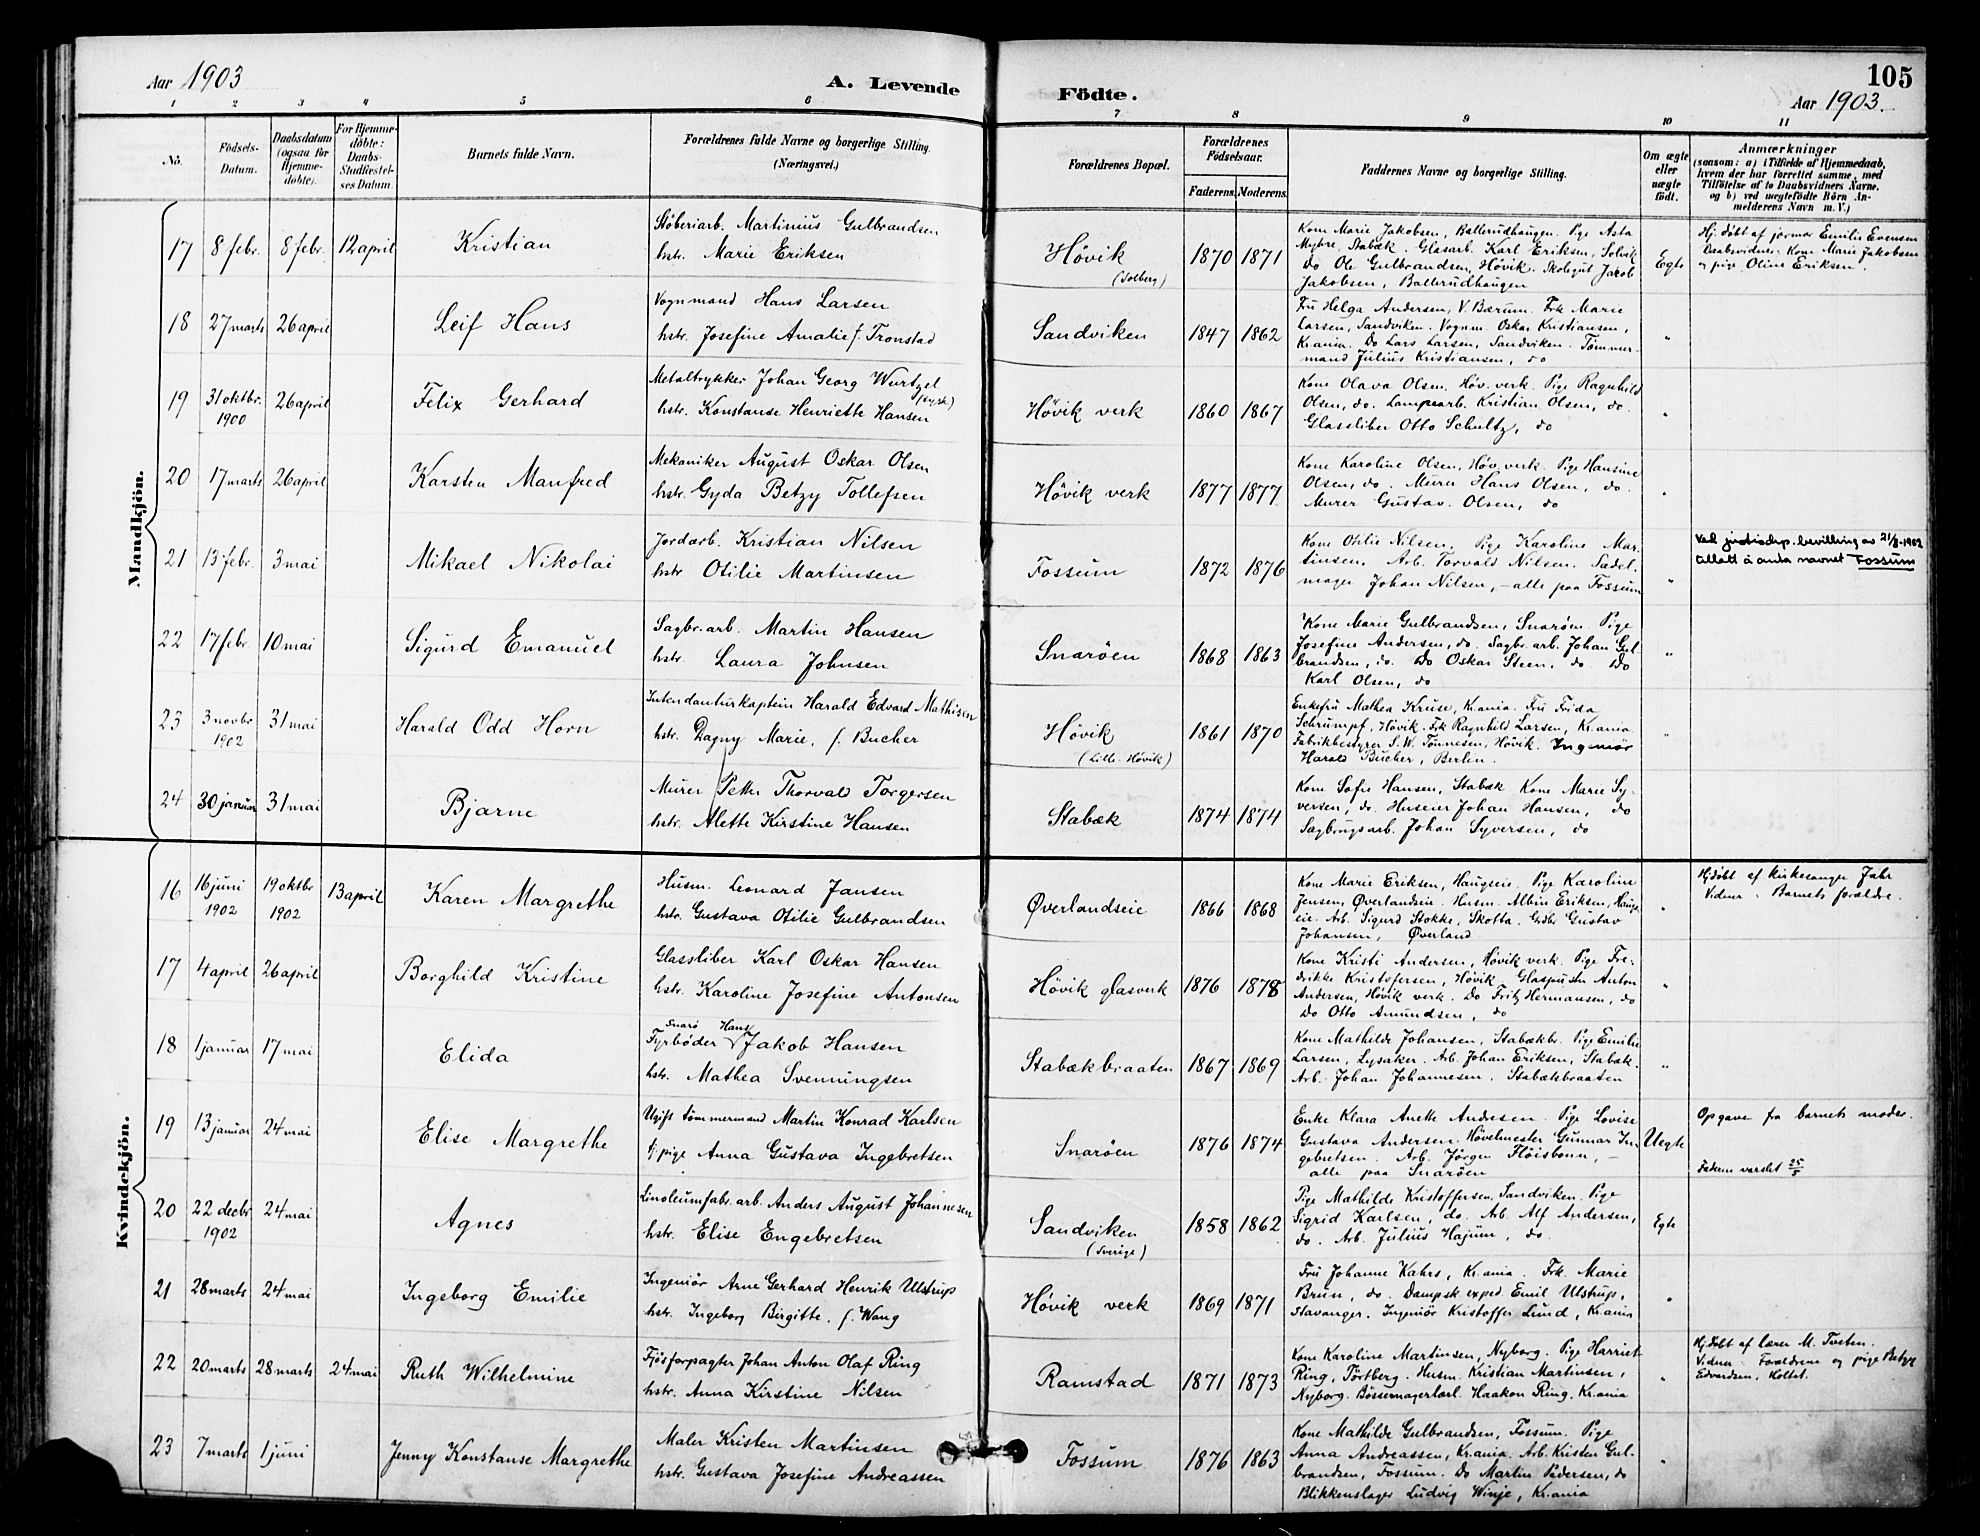 Aar 1903
A. Levende
Födte.
105
Aar 1903.
1 2 3 4 5 6 7 8 9 10 11
No.
Födsels-
Datum.
Daabsdatum
(ogsaa for
Hjemme-
döbte).
For Hjemme-
döbte:
Daabs-
Stadfæstel-
ses Datum.
Barnets fulde Navn.
Forældrenes fulde Navne og borgerlige Stilling.
(Næringsvei.)
Forældrenes Bopæl.
Forældrenes
Födselsaar.
Faderens. Moderens.
Faddernes Navne og borgerlige Stilling.
Om ægte
eller
uægte
født.
Anmærkninger
(saasom: a) i Tilfælde af Hjemmedaab,
hvem der har forrettet samme, med
Tilföielse af to Daabsvidners Navne,
og b) ved uægtefödte Börn An-
melderens Navn m. V.)
Mandkjön.
17 8 febr. 8 febr. 12 april Kristian
Støberiarb. Martinius Gulbrandsen
hstr. Marie Eriksen
Høvik
(Solberg)
1870 1871
Kone Marie Jakobsen, Ballerudhaugen. Pige Asta
Myhre, Stabæk. Glasarb. Karl Eriksen, Solvik
Do Ole Gulbrandsen, Høvik. Skolegut Jacob
Jakobsen, Ballerudhaugen
Egte
Hj. døbt af jormor Emilie Evensen
Daabsvidner: Kone Marie Jakobsen
og pige Oline Eriksen.
18 27 marts 26 april Leif Hans
Vognmand Hans Larsen
hstr. Josefine Amalie f. Tronstad
Sandviken
1847 1862
Fru Helga Andersen, V. Bærum. Frk Marie
Larsen, Sandviken. Vognm. Oskar Kristiansen,
Kr.ania. Do Lars Larsen, Sandviken. Tømmer-
mand Julius Kristiansen, do
"
19 31 oktbr. 1900 26 april Felix Gerhard
Metaltrykker Johan Georg Wurtzel
(tysk)
hstr. Konstanse Henriette Hansen
Høvik verk
1860 1867
Kone Olava Olsen, Høv. verk. Pige Ragnhild
Olsen, do. Lampearb. Kristian Olsen, do.
Glassliber Otto Schultz, do
"
20 17 marts 26 april Karsten Manfred
Mekaniker August Oskar Olsen
hstr. Gyda Betzy Tollefsen
Høvik verk
1877 1877
Kone Karoline Olsen, Høv. verk. Pige Hansine
Olsen, do. Murer Hans Olsen, do.
Murer Gustav Olsen, do
"
21 13 febr. 3 mai Mikael Nikolai
Jordarb. Kristian Nilsen
hstr Otilie Martinsen
Fossum
1872 1876
Kone Otilie Nilsen, Pige Karoline Mar-
tinsen, Arb. Torvald Nilsen. Sadel-
mager Johan Nilsen, - alle paa Fossum
"
Ved justisdep. bevilling av
tillatt å anta navnet Fossum
22 17 febr. 10 mai Sigurd Emanuel
Sagbr. arb. Martin Hansen
hstr. Laura Johnsen
Snarøen
1868 1863
Kone Marie Gulbrandsen, Snarøen. Pige
Josefine Andersen, do. Sagbr. arb. Johan Gul-
brandsen, do. Do Oskar Steen, do Do
Karl Olsen, do
"
23 3 novbr 1902 31 mai Harald Odd Horn
Intendanturkaptein Harald Edvard Mathisen
hstr. Dagny Marie, f. Bucher
Høvik
(Lille-Høvik)
1861 1870
Enkefru Mathea Kruse, Kr.ania. Fru Frida
Schrumpf, Høvik. Frk Ragnhild Larsen, Kr.ania
Fabrikbestyrer S. W. Tønnesen, Høvik. Ingeniør
Harald Bucher, Berlin.
"
24 30 januar 31 mai Bjarne
Murer Petter Thorvald Torgersen
hstr. Alette Kirstine Hansen
Stabæk
1874 1874
Kone Sofie Hansen, Stabæk Kone Marie Sy-
versen, do. Huseier Johan Hansen, do
Sagbrugsarb. Johan Syversen, do
Kvindekjön.
16 16 juni 1902 19 oktbr 1902 13 april Karen Margrethe
Husm. Leonard Jansen
hstr. Gustava Otilie Gulbrandsen
Øverlandseie
1866 1868
Kone Marie Eriksen, Haugseie. Pige Karoline
Jensen, Øverlandseie. Husm. Albin Eriksen, Haugs-
eie. Arb. Sigurd Stokke, Skotta. Grdbr Gustav
Johansen, Øverland
"
Hj.døbt af kirkesanger Jahr
Vidner: Barnets forældre.
17 4 april 26 april Borghild Kristine
Glassliber Karl Oskar Hansen
hstr. Karoline Josefine Antonsen
Høvik glasverk
1876 1878
Kone Kristi Andersen, Høvik verk. Pige Fre-
drikke Kristofersen, Høvik Glaspuster Anton
Andersen, Høvik verk. Do Fritz Hermansen, do
Do Otto Amundsen, do
"
18 1 januar 17 mai Elida
Snarø Hans
Fyrbøder Jakob Hansen
hstr. Mathea Svenningsen
Stabækbraaten
1867 1869
Kone Mathilde Johansen, Stabækbr. Pige Emilie
Larsen, Lysaker. Arb. Johan Eriksen, Stabæk.
Arb. Johan Johannesen. Stabækbraaten
"
19 13 januar 24 mai Elise Margrethe
Ugift tømmermand Martin Konrad Karlsen
pige Anna Gustava Ingebretsen
Snarøen
1876 1874
Enke Klara Anette Andresen. Pige Lovise
Gustava Andersen. Høvelmester Gunnar In-
gebretsen. Arb. Jørgen Fløisbonn, -
alle paa Snarøen
Uegte
Opgave fra barnets moder.
Faderen varslet 25/5
20 22 decbr 1902 24 mai Agnes
Linoleumfabr. arb. Anders August Johannesen
hstr. Elise Engebretsen
Sandviken
(Sverige)
1858 1862
Pige Mathilde Kristoffersen, Sandviken. Pige
Sigrid Karlsen, do. Arb. Alf Andersen,
do. Arb. Julius Hajum, do.
Egte
21 28 marts 24 mai Ingeborg Emilie
Ingeniør Arne Gerhard Henrik Ulstrup
hstr. Ingeborg Birgitte, f. Wang
Høvik verk
1869 1871
Fru Johanne Kahrs, Kr.ania. Frk. Marie
Brun, do. Dampsk. exped. Emil Ulstrup,
Stavanger. Ingeniør Kristoffer Lund, Kr.ania
"
22 20 marts 28 marts 24 mai Ruth Wilhelmine
Fjøsforpagter Johan Anton Olaf Ring
hstr. Anna Kirstine Nilsen
Ramstad
1871 1873
Kone Karoline Martinsen, Nyborg. Pige Harriet
Ring, Tørtberg. Husm. Kristian Martinsen,
Nyborg. Bøssemagerlærl. Haakon Ring, Kr.ania
"
Hj.døbt af lærer M. Tveten.
Vidner: Forældrene og pige Betzy
Edvardsen, Holtet.
23 7 marts 1 juni Jenny Konstanse Margrethe
Maler Kristen Martinsen
hstr. Gustava Josefine Andreassen
Fossum
1876 1863
Kone Mathilde Gulbrandsen, Fossum. Pige
Anna Andreassen, Kr.ania. Arb. Kristen Gul-
brandsen, Fossum. Do Martin Pedersen, do
Blikkenslager Ludvig Winje, Kr.ania
"